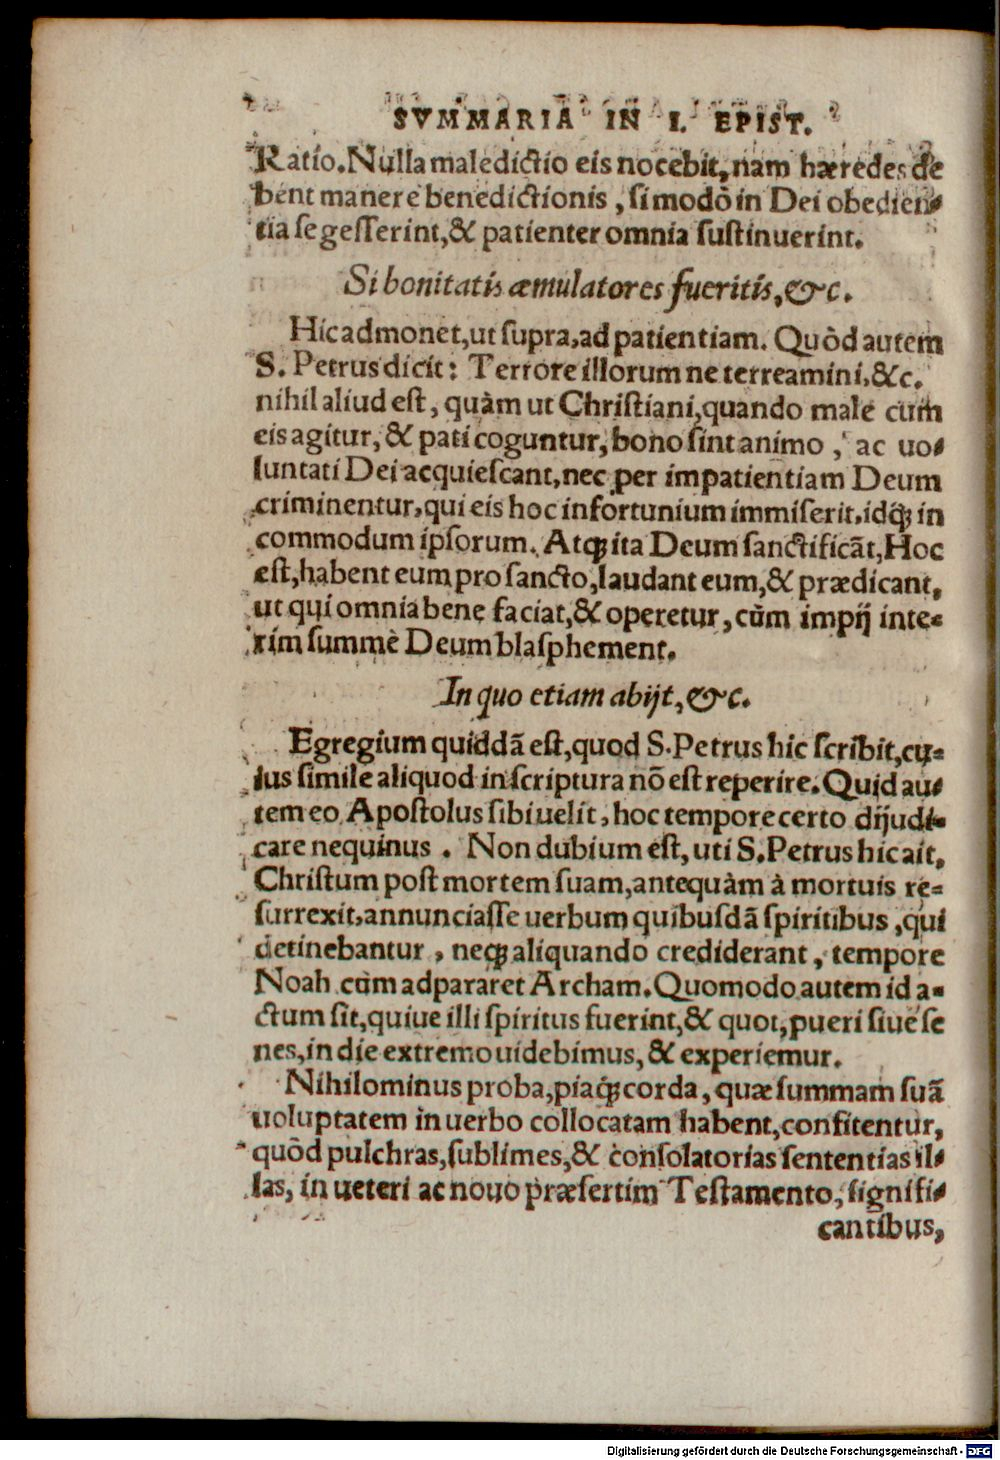 SVMMARIA IN I. EPIST.
Ratio. Nulla maledictio eis nocebit, nam hæredes de
bent manere benedictionis, si modò in Dei obedien-
tia se gesserint, & patienter omnia sustinuerint.
Si bonitatis æmulatores fueritis, &c.
Hic admonet, ut supra, ad patientiam. Quòd autem
S. Petrus dicit: Terrore illorum ne terreamini, &c.
nihil aliud est, quàm ut Christiani, quando male cum
eis agitur, & pati coguntur, bono sint animo, ac uo-
luntati Dei acquiescant, nec per impatientiam Deum
criminentur, qui eis hoc infortunium immiserit, idq́; in
commodum ipsorum. Atq; ita Deum sanctificãt, Hoc
est, habent eum pro sancto, laudant eum, & prædicant,
ut qui omnia bene faciat, & operetur, cùm impij inte-
rim summè Deum blasphement.
In quo etiam abijt, &c.
Egregium quiddã est, quod S. Petrus hic scribit, cu-
ius simile aliquod in scriptura nõ est reperire. Quid au-
tem eo Apostolus sibi uelit, hoc tempore certo dijudi-
care nequinus. Non dubium est, uti S. Petrus hic ait,
Christum post mortem suam, antequàm à mortuis re-
surrexit, annunciasse uerbum quibusdã spiritibus, qui
detinebantur, neq; aliquando crediderant, tempore
Noah cùm adpararet Archam. Quomodo autem id a-
ctum sit, quiue illi spiritus fuerint, & quot, pueri siue se
nes, in die extremo uidebimus, & experiemur.
Nihilominus proba, piaq́; corda, quæ summam suã
uoluptatem in uerbo collocatam habent, confitentur,
quòd pulchras, sublimes, & consolatorias sententias il-
las, in ueteri ac nouo præsertim Testamento, signifi-
cantibus,
Digitalisierung gefördert durch die Deutsche Forschungsgemeinschaft - DFG